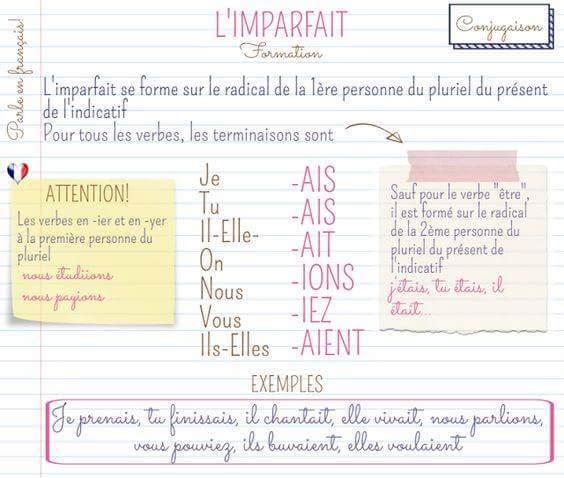 L'IMPARFAIT
Formation
Conjugaison
Parle en français!
L'imparfait se forme sur le radical de la 1ère personne du pluriel du présent
de l'indicatif
Pour tous les verbes, les terminaisons sont
ATTENTION!
Les verbes en -ier et en -yer
à la première personne du
pluriel
nous étudiions
nous payions
Je -AIS
Tu -AIS
Il-Elle- -AIT
On
Nous -IONS
Vous -IEZ
Ils-Elles -AIENT
Sauf pour le verbe "être",
il est formé sur le radical
de la 2ème personne du
pluriel du présent de
l'indicatif
j'étais, tu étais, il
était...
EXEMPLES
Je prenais, tu finissais, il chantait, elle vivait, nous parlions,
vous pouviez, ils buvaient, elles voulaient